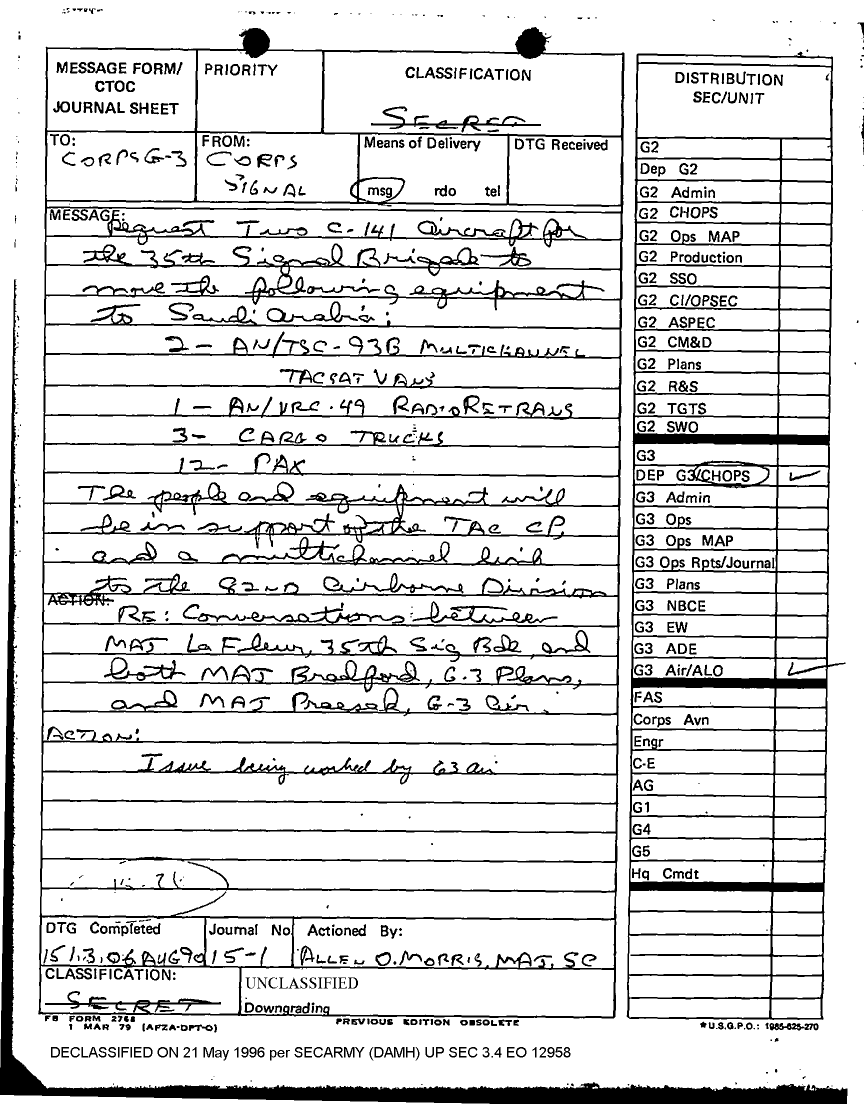 MESSAGE FORM/
CTOC
JOURNAL SHEET
PRIORITY
CLASSIFICATION
SECRET
DISTRIBUTION
SEC/UNIT
TO:
CORPS G-3
FROM:
CORPS
SIGNAL
Means of Delivery
msg rdo tel
DTG Received
MESSAGE:
Request Two C-141 Aircraft for
the 35th Signal Brigade to
move the following equipment
to Saudi Arabia:
2- AN/TSC-93B MULTICHANNEL
TACSAT VANS
1- AN/VRC-49 RADIO RETRANS
3- CARGO TRUCKS
12- PAX
The people and equipment will
be in support of the TAC CP,
and a multichannel link
to the 82ND Airborne Division
ACTION:
RE: Conversations between
MAJ LaFleur, 35th Sig Bde, and
both MAJ Bradford, G-3 Plans,
and MAJ G-3 Air.
ACTION:
Issue being worked by G3 air
DTG Completed
151306AUG90
Journal No
15-1
Actioned By:
ALLEN O. MORRIS, MAJ, SC
CLASSIFICATION:
SECRET
UNCLASSIFIED
Downgrading
FB FORM 2768
1 MAR 79 (AFZA-DPT-O)
PREVIOUS EDITION OBSOLETE
*U.S.G.P.O.: 1985-625-270
DECLASSIFIED ON 21 May 1996 per SECARMY (DAMH) UP SEC 3.4 EO 12958
G2
Dep G2
G2 Admin
G2 CHOPS
G2 Ops MAP
G2 Production
G2 SSO
G2 CI/OPSEC
G2 ASPEC
G2 CM&D
G2 Plans
G2 R&S
G2 TGTS
G2 SWO
G3
DEP G3/CHOPS
G3 Admin
G3 Ops
G3 Ops MAP
G3 Ops Rpts/Journal
G3 Plans
G3 NBCE
G3 EW
G3 ADE
G3 Air/ALO
FAS
Corps Avn
Engr
C-E
AG
G1
G4
G5
Hq Cmdt